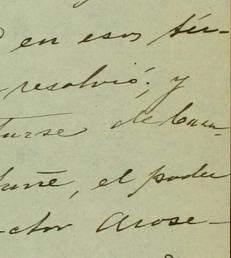 en esos tér-
resolvió; y
turse de Cun-
, el poder
ctor Arose-